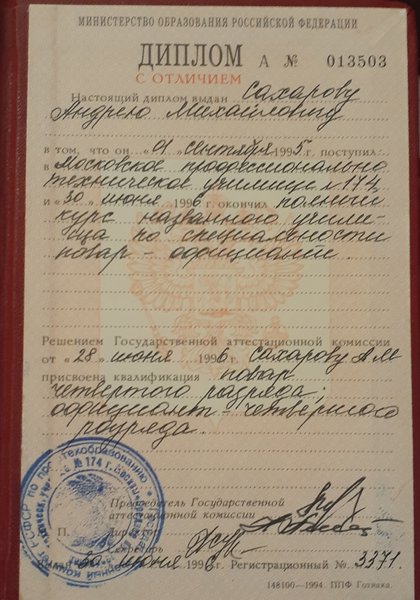 МИНИСТЕРСТВО ОБРАЗОВАНИЯ РОССИЙСКОЙ ФЕДЕРАЦИИ
ДИПЛОМ А № 013503
С ОТЛИЧИЕМ
Настоящий диплом выдан Сахарову
Андрею Михайловичу
в том, что он «01» сентября 1995 г. поступил
в Московское профессионально
техническое училище № 174
и «30» июня 1996 г. окончил полный
курс названного учили-
ща по специальности
повар - официант.
Решением Государственной аттестационной комиссии
от «28» июня 1996 г. Сахарову А.М
присвоена квалификация повар
четвертого разряда;
официант - четвертого
разряда.
Председатель Государственной
аттестационной комиссии
М. П. Директор
Секретарь
30 июня 1996 г. Регистрационный № 3371.
148100—1994. ППФ Гознака.
№ 174